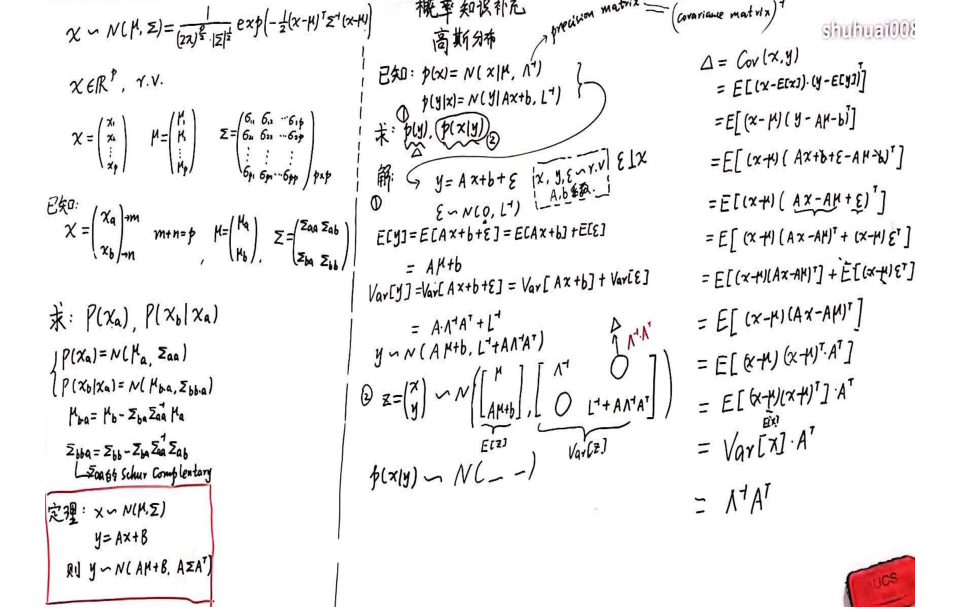 x ~ N(μ, Σ) = 1/((2π)^{p/2}·|Σ|^{1/2}) exp(-1/2(x-μ)^T Σ^{-1}(x-μ))
x ∈ ℝ^p, r.v.
x = (x₁ x₂ ⋮ x_p) μ = (μ₁ μ₂ ⋮ μ_p) Σ = (σ₁₁ σ₁₂ ⋯ σ₁p σ₂₁ σ₂₂ ⋯ σ₂p ⋮ ⋮ ⋮ σp₁ σp₂ ⋯ σpp) p×p
已知:
x = (x_a x_b) →m →n m+n=p, μ = (μ_a μ_b), Σ = (Σaa Σab Σba Σbb)
求: P(x_a), P(x_b|x_a)
P(x_a) = N(μ_a, Σaa)
P(x_b|x_a) = N(μ_b·a, Σbb·a)
μ_b·a = μ_b - Σba Σaa^{-1} μ_a
Σbb·a = Σbb - Σba Σaa^{-1} Σab
Σaa的 Schur Complentary
定理: x ~ N(μ,Σ)
y = Ax+B
则 y ~ N(Aμ+B, AΣA^T)
概率知识补充
高斯分布
precision matrix = (covariance matrix)^{-1}
已知: p(x) = N(x|μ, Λ^{-1})
p(y|x) = N(y|Ax+b, L^{-1})
求: ① p(y), p(x|y) ②
Δ
解:
① y = Ax+b+ε
x, y, ε ~ r.v
A, b 系数.
ε⊥x
ε ~ N(0, L^{-1})
E[y] = E[Ax+b+ε] = E[Ax+b]+E[ε]
= Aμ+b
Var[y] = Var[Ax+b+ε] = Var[Ax+b] + Var[ε]
= A·Λ^{-1}A^T + L^{-1}
y ~ N(Aμ+b, L^{-1}+AΛ^{-1}A^T)
Δ Λ^{-1}A^T
② z = (x y) ~ N([μ Aμ+b], [Λ^{-1} O O L^{-1}+AΛ^{-1}A^T])
E[z] Var[z]
p(x|y) ~ N(_ _)
shuhuai008
Δ = Cov(x,y)
= E[(x-E[x])·(y-E[y])^T]
= E[(x-μ)(y-Aμ-b)^T]
= E[(x-μ)(Ax+b+ε-Aμ-b)^T]
= E[(x-μ)(Ax-Aμ+ε)^T]
= E[(x-μ)(Ax-Aμ)^T + (x-μ)ε^T]
= E[(x-μ)(Ax-Aμ)^T] + E[(x-μ)ε^T]
= E[(x-μ)(Ax-Aμ)^T]
= E[(x-μ)(x-μ)^T·A^T]
= E[(x-μ)(x-μ)^T]·A^T
E[x]
= Var[x]·A^T
= Λ^{-1}A^T
UCS